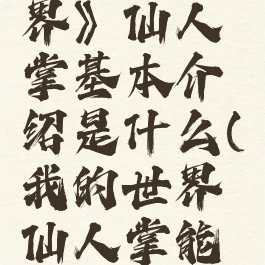 界》仙人
掌基本介
绍是什么(
我的世界
仙人掌能